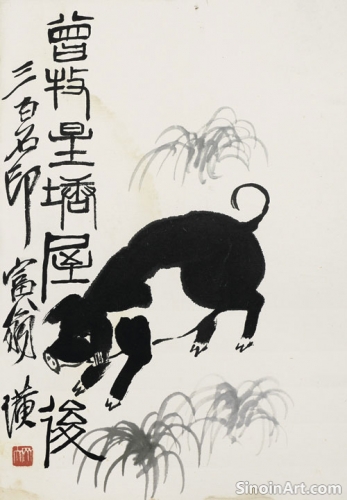 曾牧星塘屋後
三百石印富翁璜
SinoinArt.com